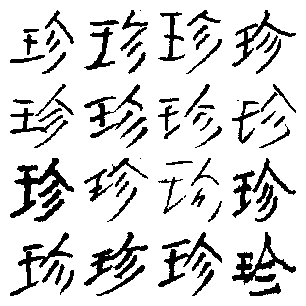 珍珍珍珍
珍珍珍珍
珍珍珍珍
珍珍珍珍